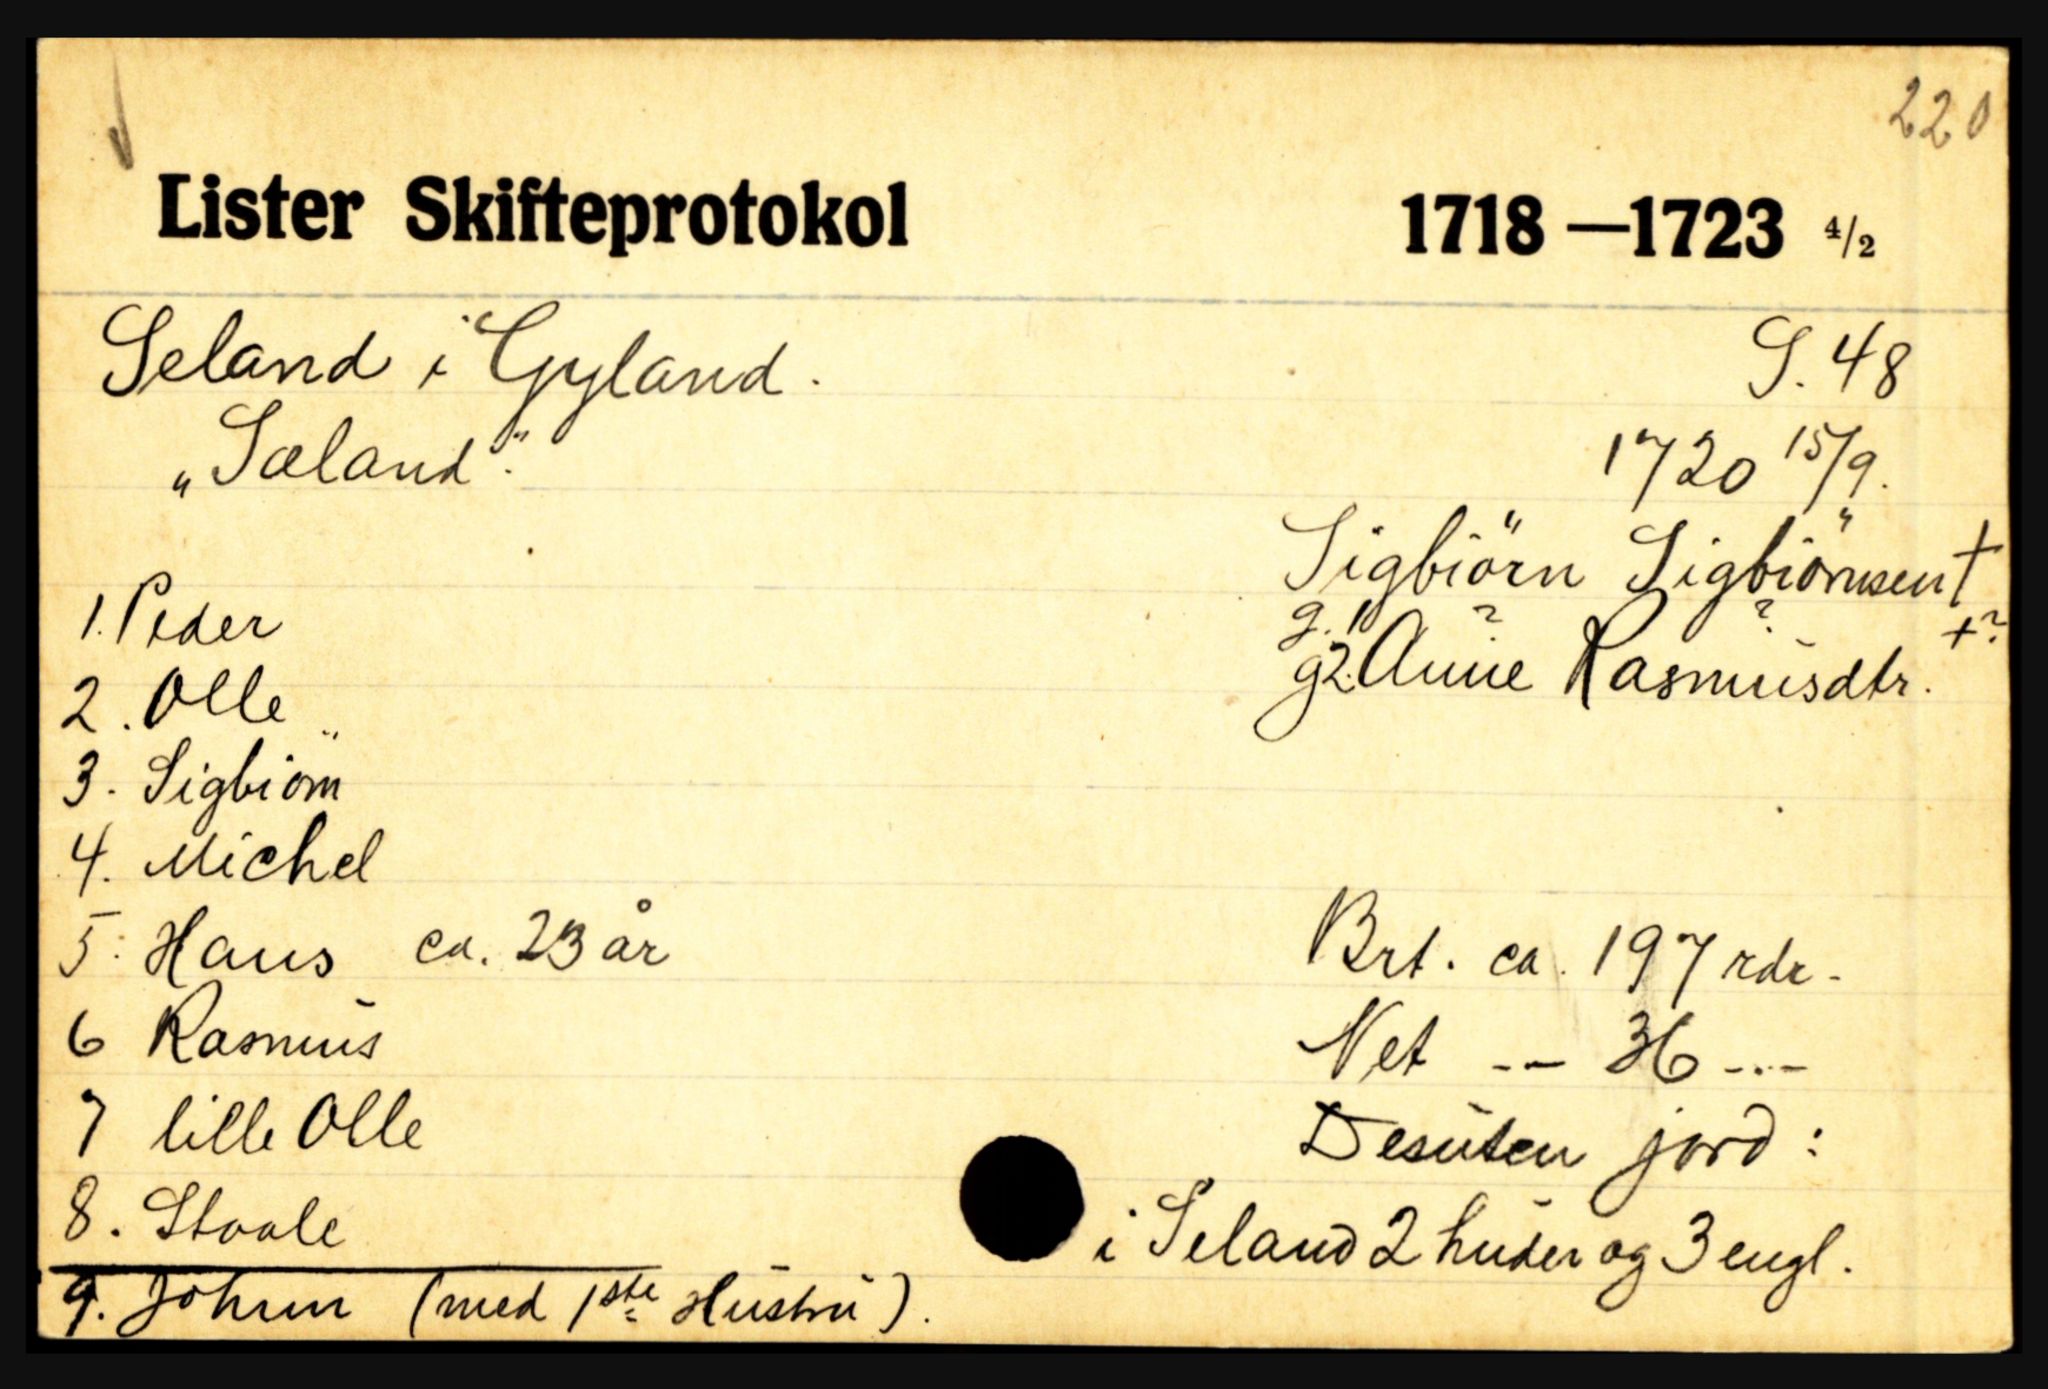 220
Lister Skifteprotokol 1718 — 1723 4/2
Seland i Gyland. S. 48
„Sæland". 1720 15/9.
Sigbiörn Sigbiörnsen †
g. 1 ? ? +?
g2. Anne Rasmusdtr.
1. Peder
2. Olle
3. Sigbiörn
4. Michel
5. Hans ca. 23 år Brt. ca. 197 rdr.
6 Rasmus Net -- 36 ---
7 lille Olle Desuten jord:
8. Stoale i Seland 2 huder og 3 engl.
9. John (med 1ste Hustru).